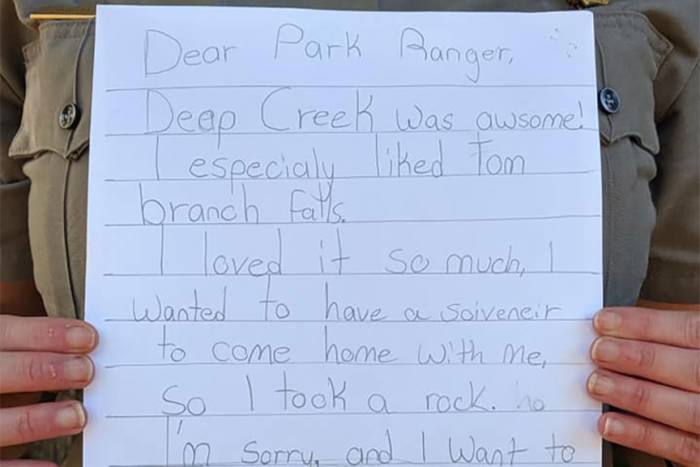 Dear Park Ranger,
Deep Creek was awsome!
I especialy liked Tom
branch falls.
I loved it so much, I
wanted to have a soiveneir
to come home with me,
so I took a rock.
I'm sorry, and I want to